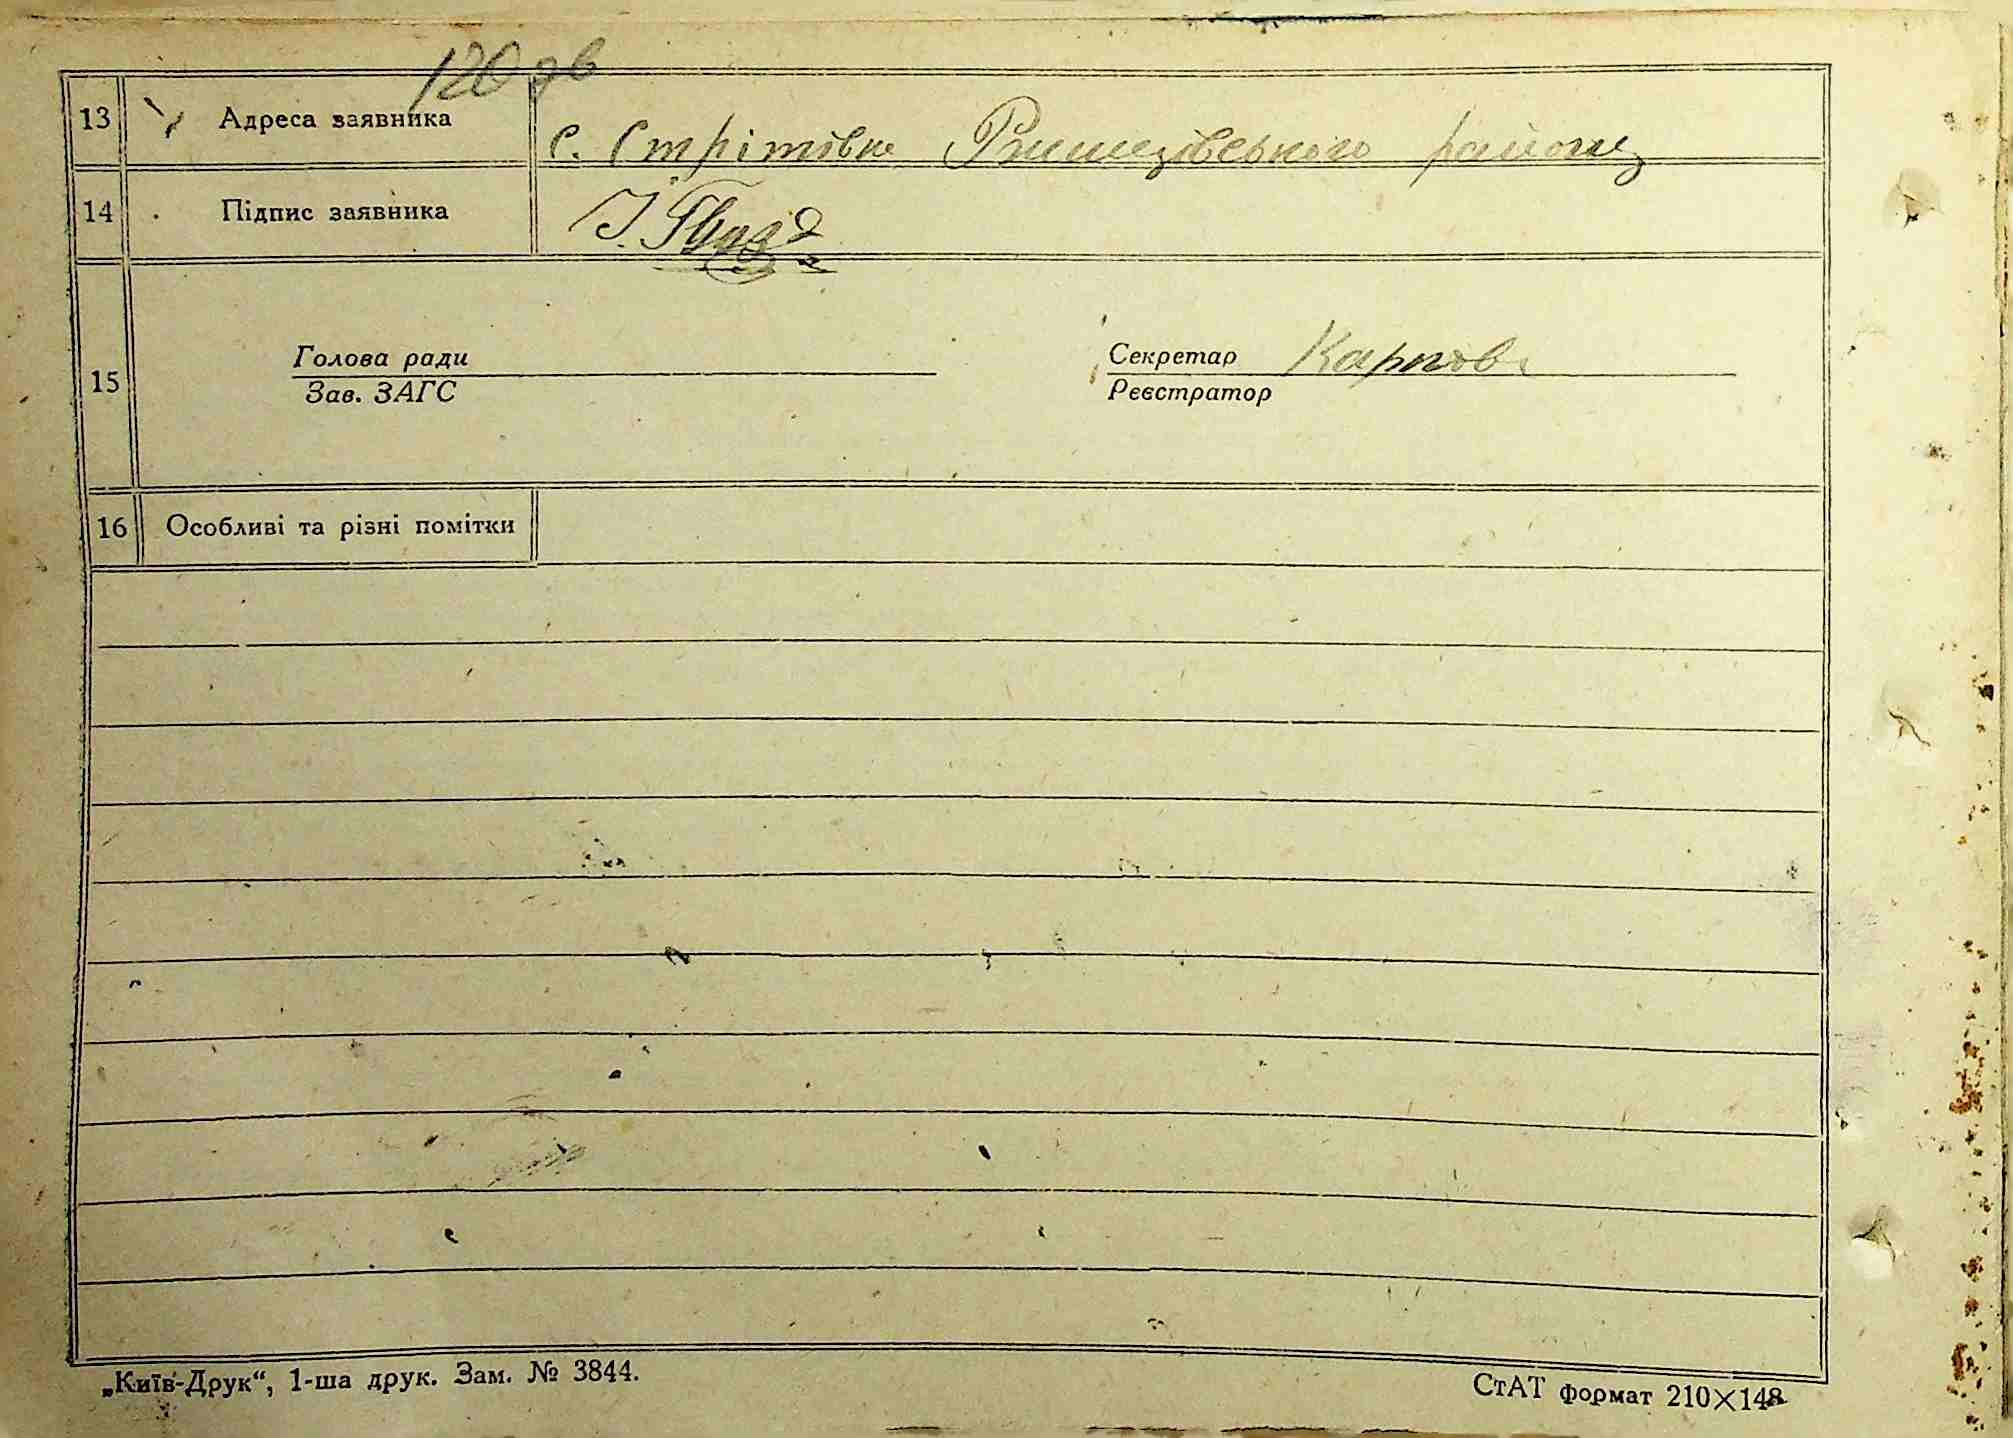 120 зв
13 Адреса заявника с. Стрітівка Ржищівського району
14 Підпис заявника І. Гвозд
Голова ради Секретар Карпов
15
Зав. ЗАГС Реєстратор
16 Особливі та різні помітки
„Київ-Друк“, 1-ша друк. Зам. № 3844. СтАТ формат 210×148